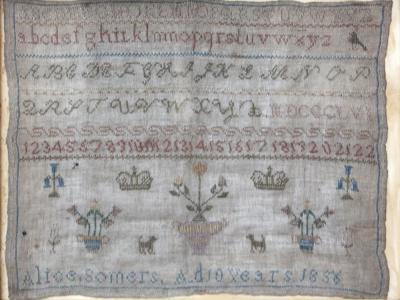 abcdefghijklmnopqrstuvwxyz
A B C D E F G H I J K L M N O P
Q R S T U V W X Y Z. MDCCCLVI
12345678910111213141516171819202122
Alice. Somers. Ad 10 Years 1856